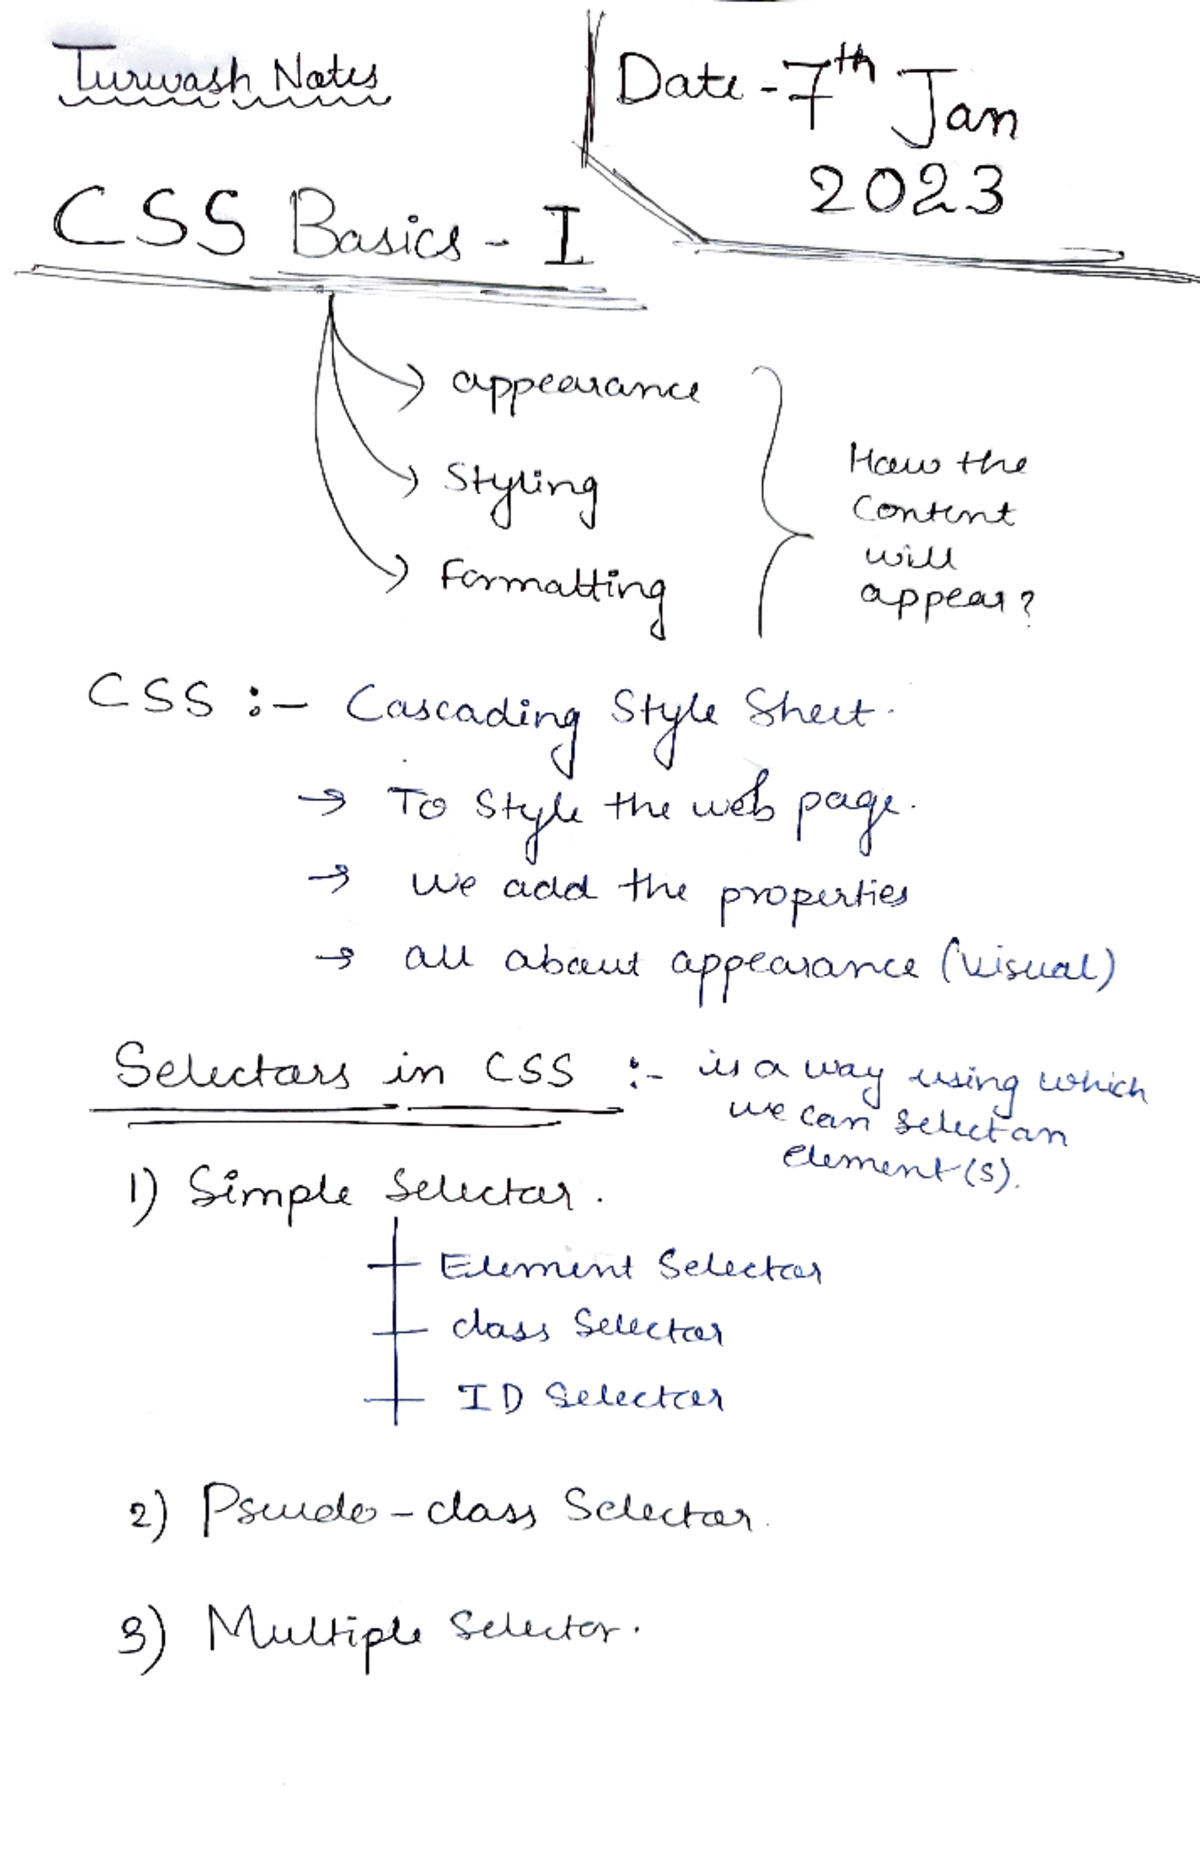 Turwash Notes
Date - 7th Jan
2023
CSS Basics - I
→ appearance
→ Styling
→ Formatting
How the
Content
will
appear?
CSS :- Cascading Style Sheet.
→ To Style the web page.
→ we add the properties
→ all about appearance (visual)
Selectors in CSS :- is a way using which
we can select an
element(s).
1) Simple Selector.
Element Selector
class Selector
ID Selector
2) Pseudo-class Selector.
3) Multiple Selector.